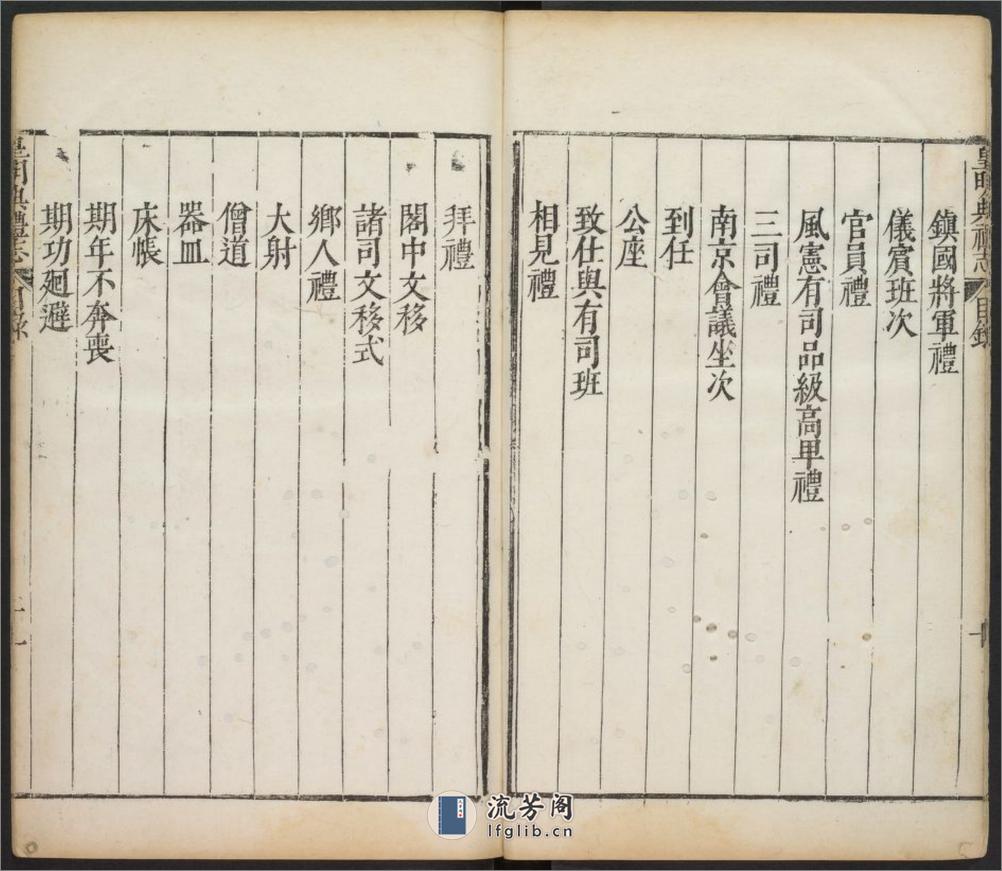 皇明典禮志 目錄
鎮國將軍禮
儀賓班次
官員禮
風憲有司品級高畀禮
三司禮
南京會議坐次
到任
公座
致仕與有司班
相見禮
拜禮
閣中文移
諸司文移式
鄉人禮
大射
僧道
器皿
床帳
期年不奔喪
期功廻避
皇明典禮志 目錄
流芳阁
lfglib.cn